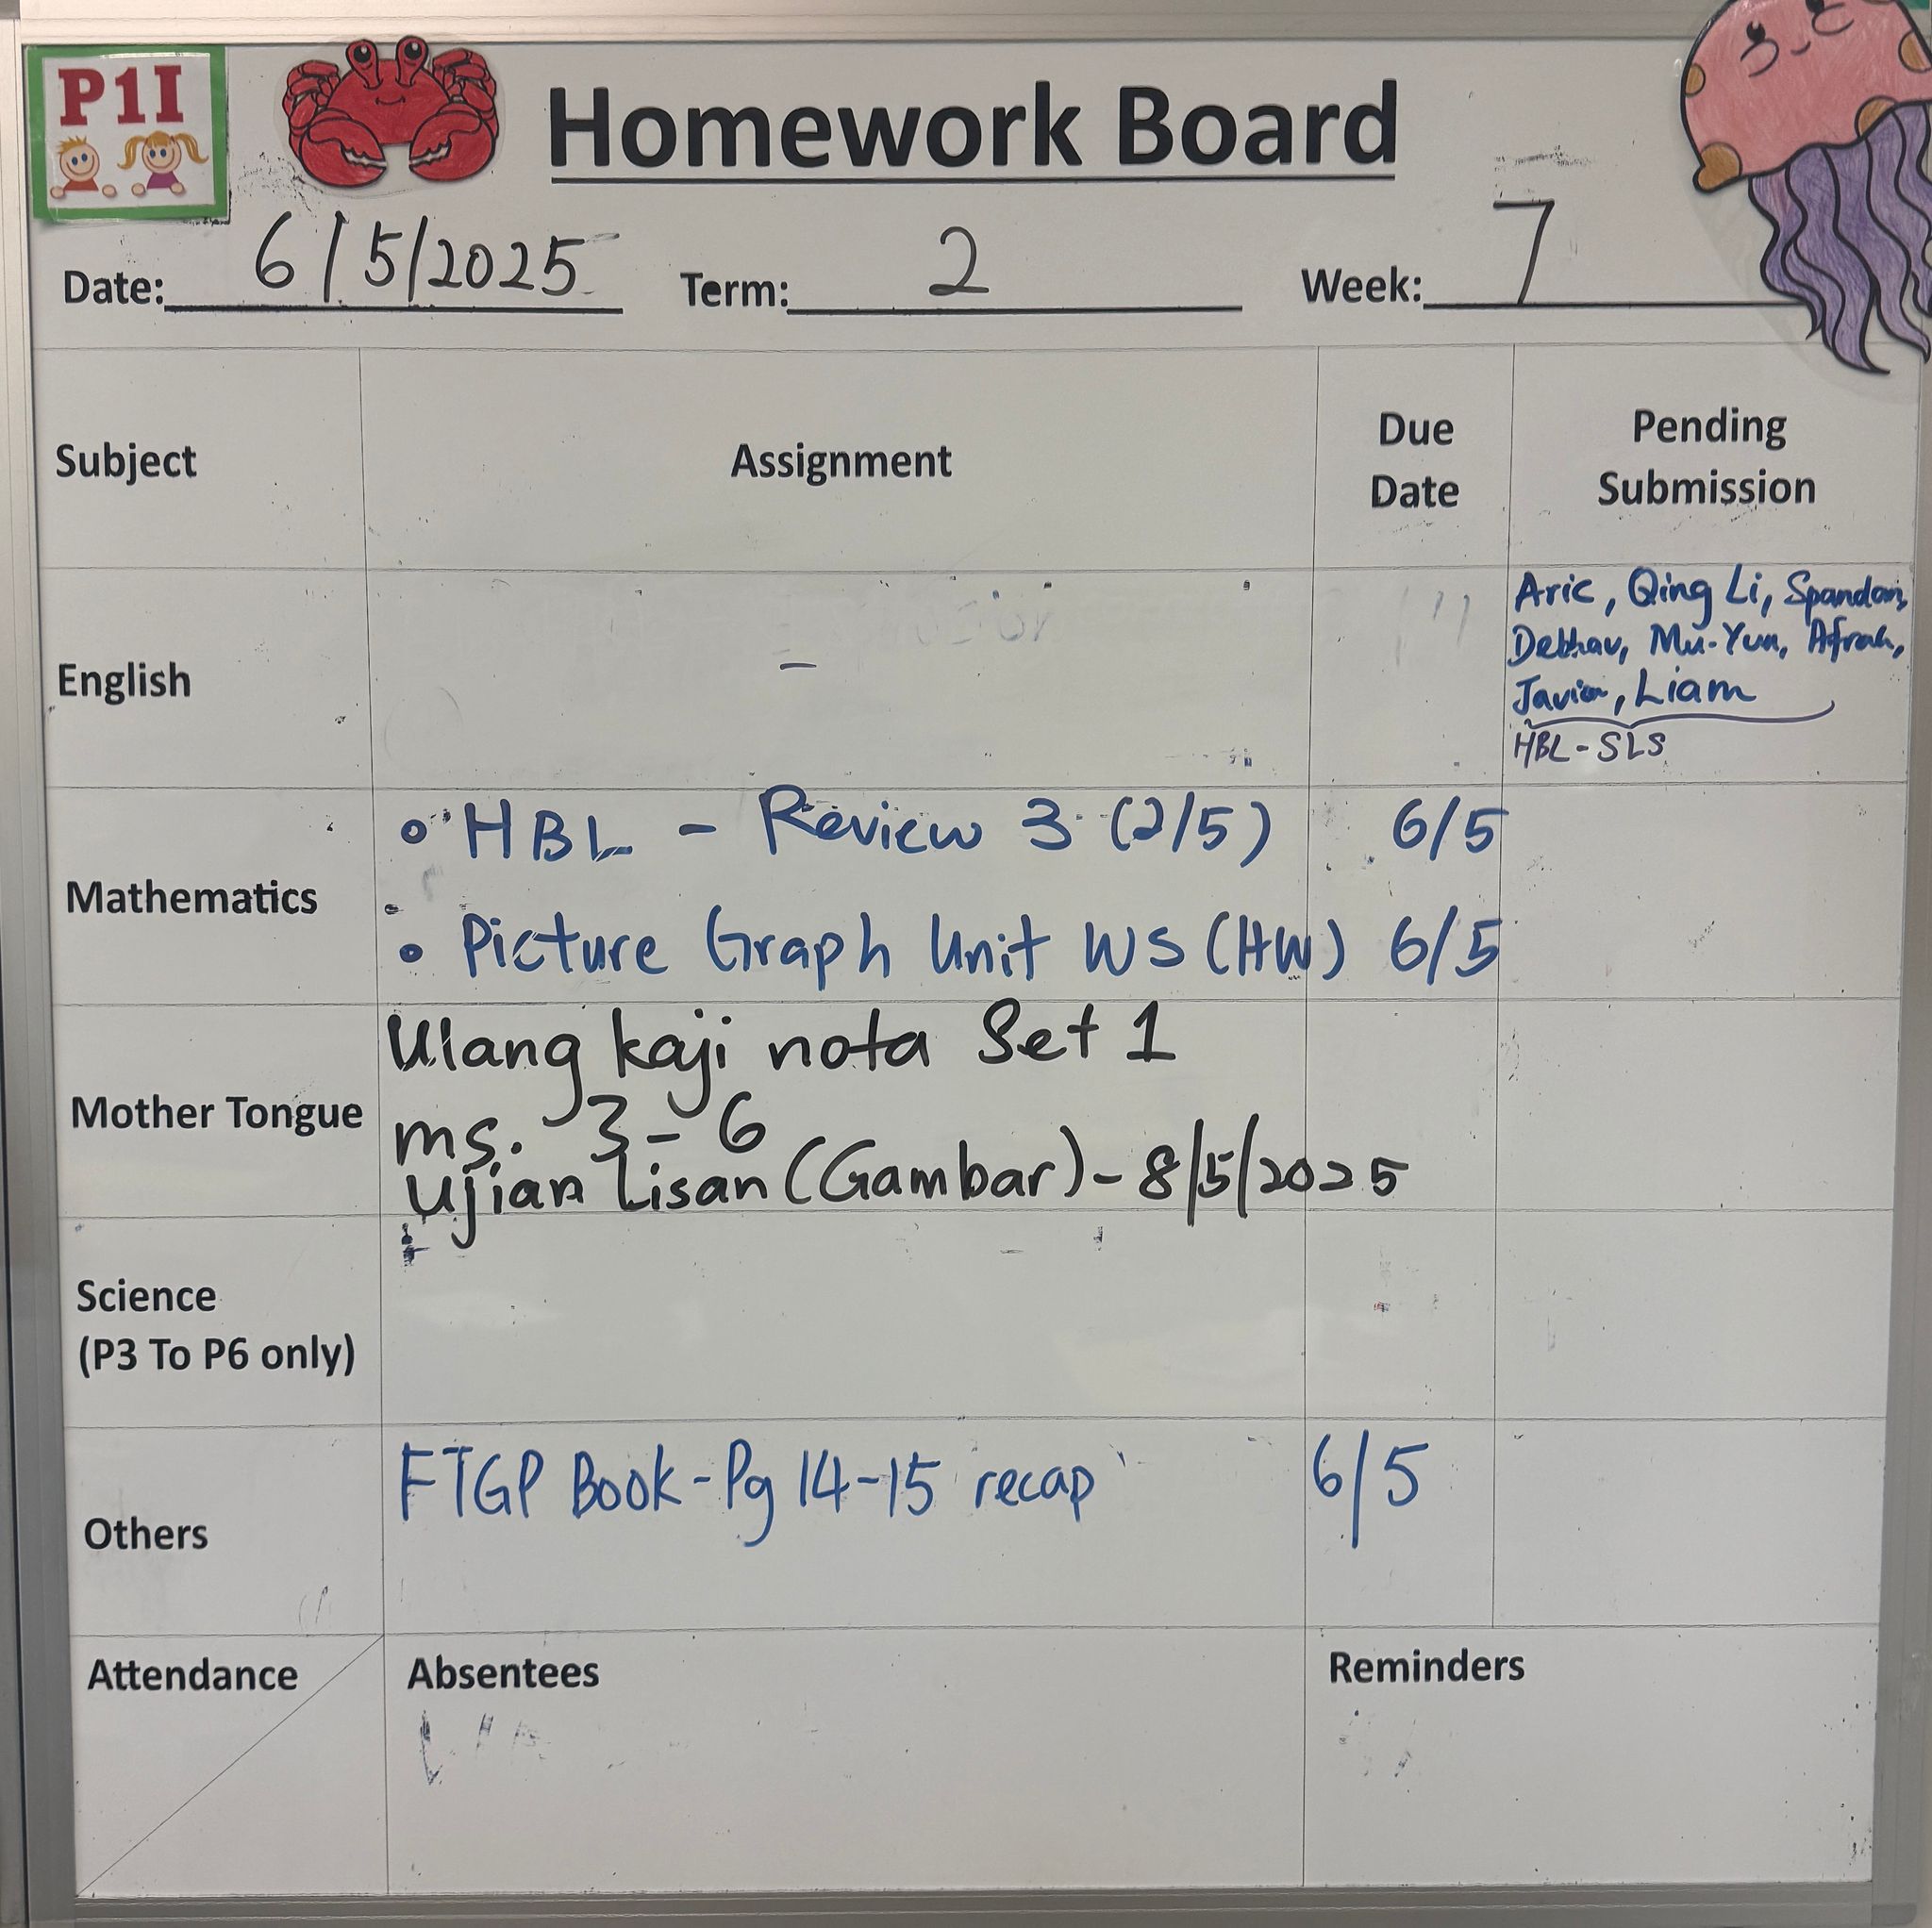 P1I
Homework Board
Date: 6/5/2025 Term: 2 Week: 7
Subject Assignment Due Date Pending Submission
English - Aric, Qing Li, Spandan,
Debhav, Mu-Yun, Afrah,
Javier, Liam
HBL - SLS
Mathematics
• HBL - Review 3 (2/5) 6/5
• Picture Graph Unit WS (HW) 6/5
Mother Tongue
Ulang kaji nota Set 1
ms. 3-6
Ujian Lisan (Gambar) - 8/5/2025
Science
(P3 To P6 only)
Others
FTGP Book - Pg 14-15 recap 6/5
Attendance Absentees Reminders